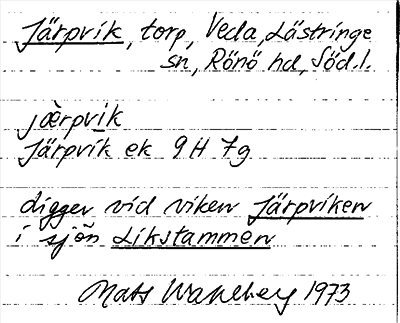 Järpvik, torp, Veda, Lästringe
sn, Rönö hd, Söd.l.
jæ̀rpvik
Järpvik ek 9H 7g
ligger vid viken Järpviken
i sjön Likstammen
Mats Wahlberg 1973